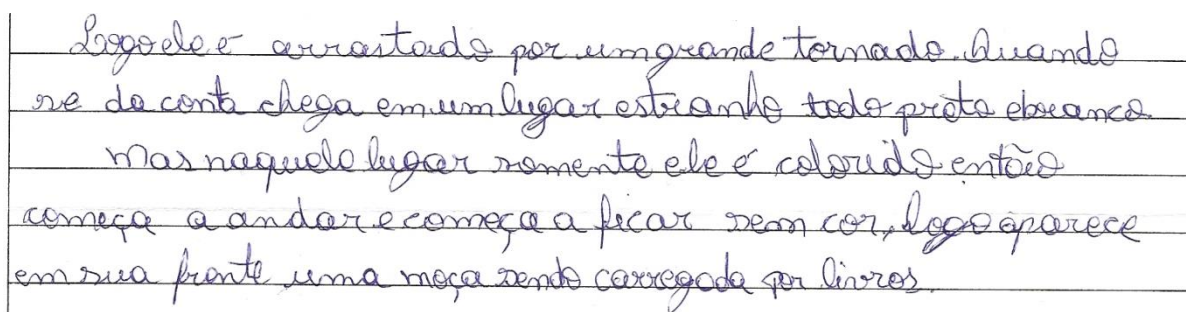 Logo ele é arrastado por um grande tornado. Quando
se da conta chega em um lugar estranho todo preto e branco
Mas naquele lugar somente ele é colorido então
começa a andar e começa a ficar sem cor, logo aparece
em sua frente uma moça sendo carregada por livros.